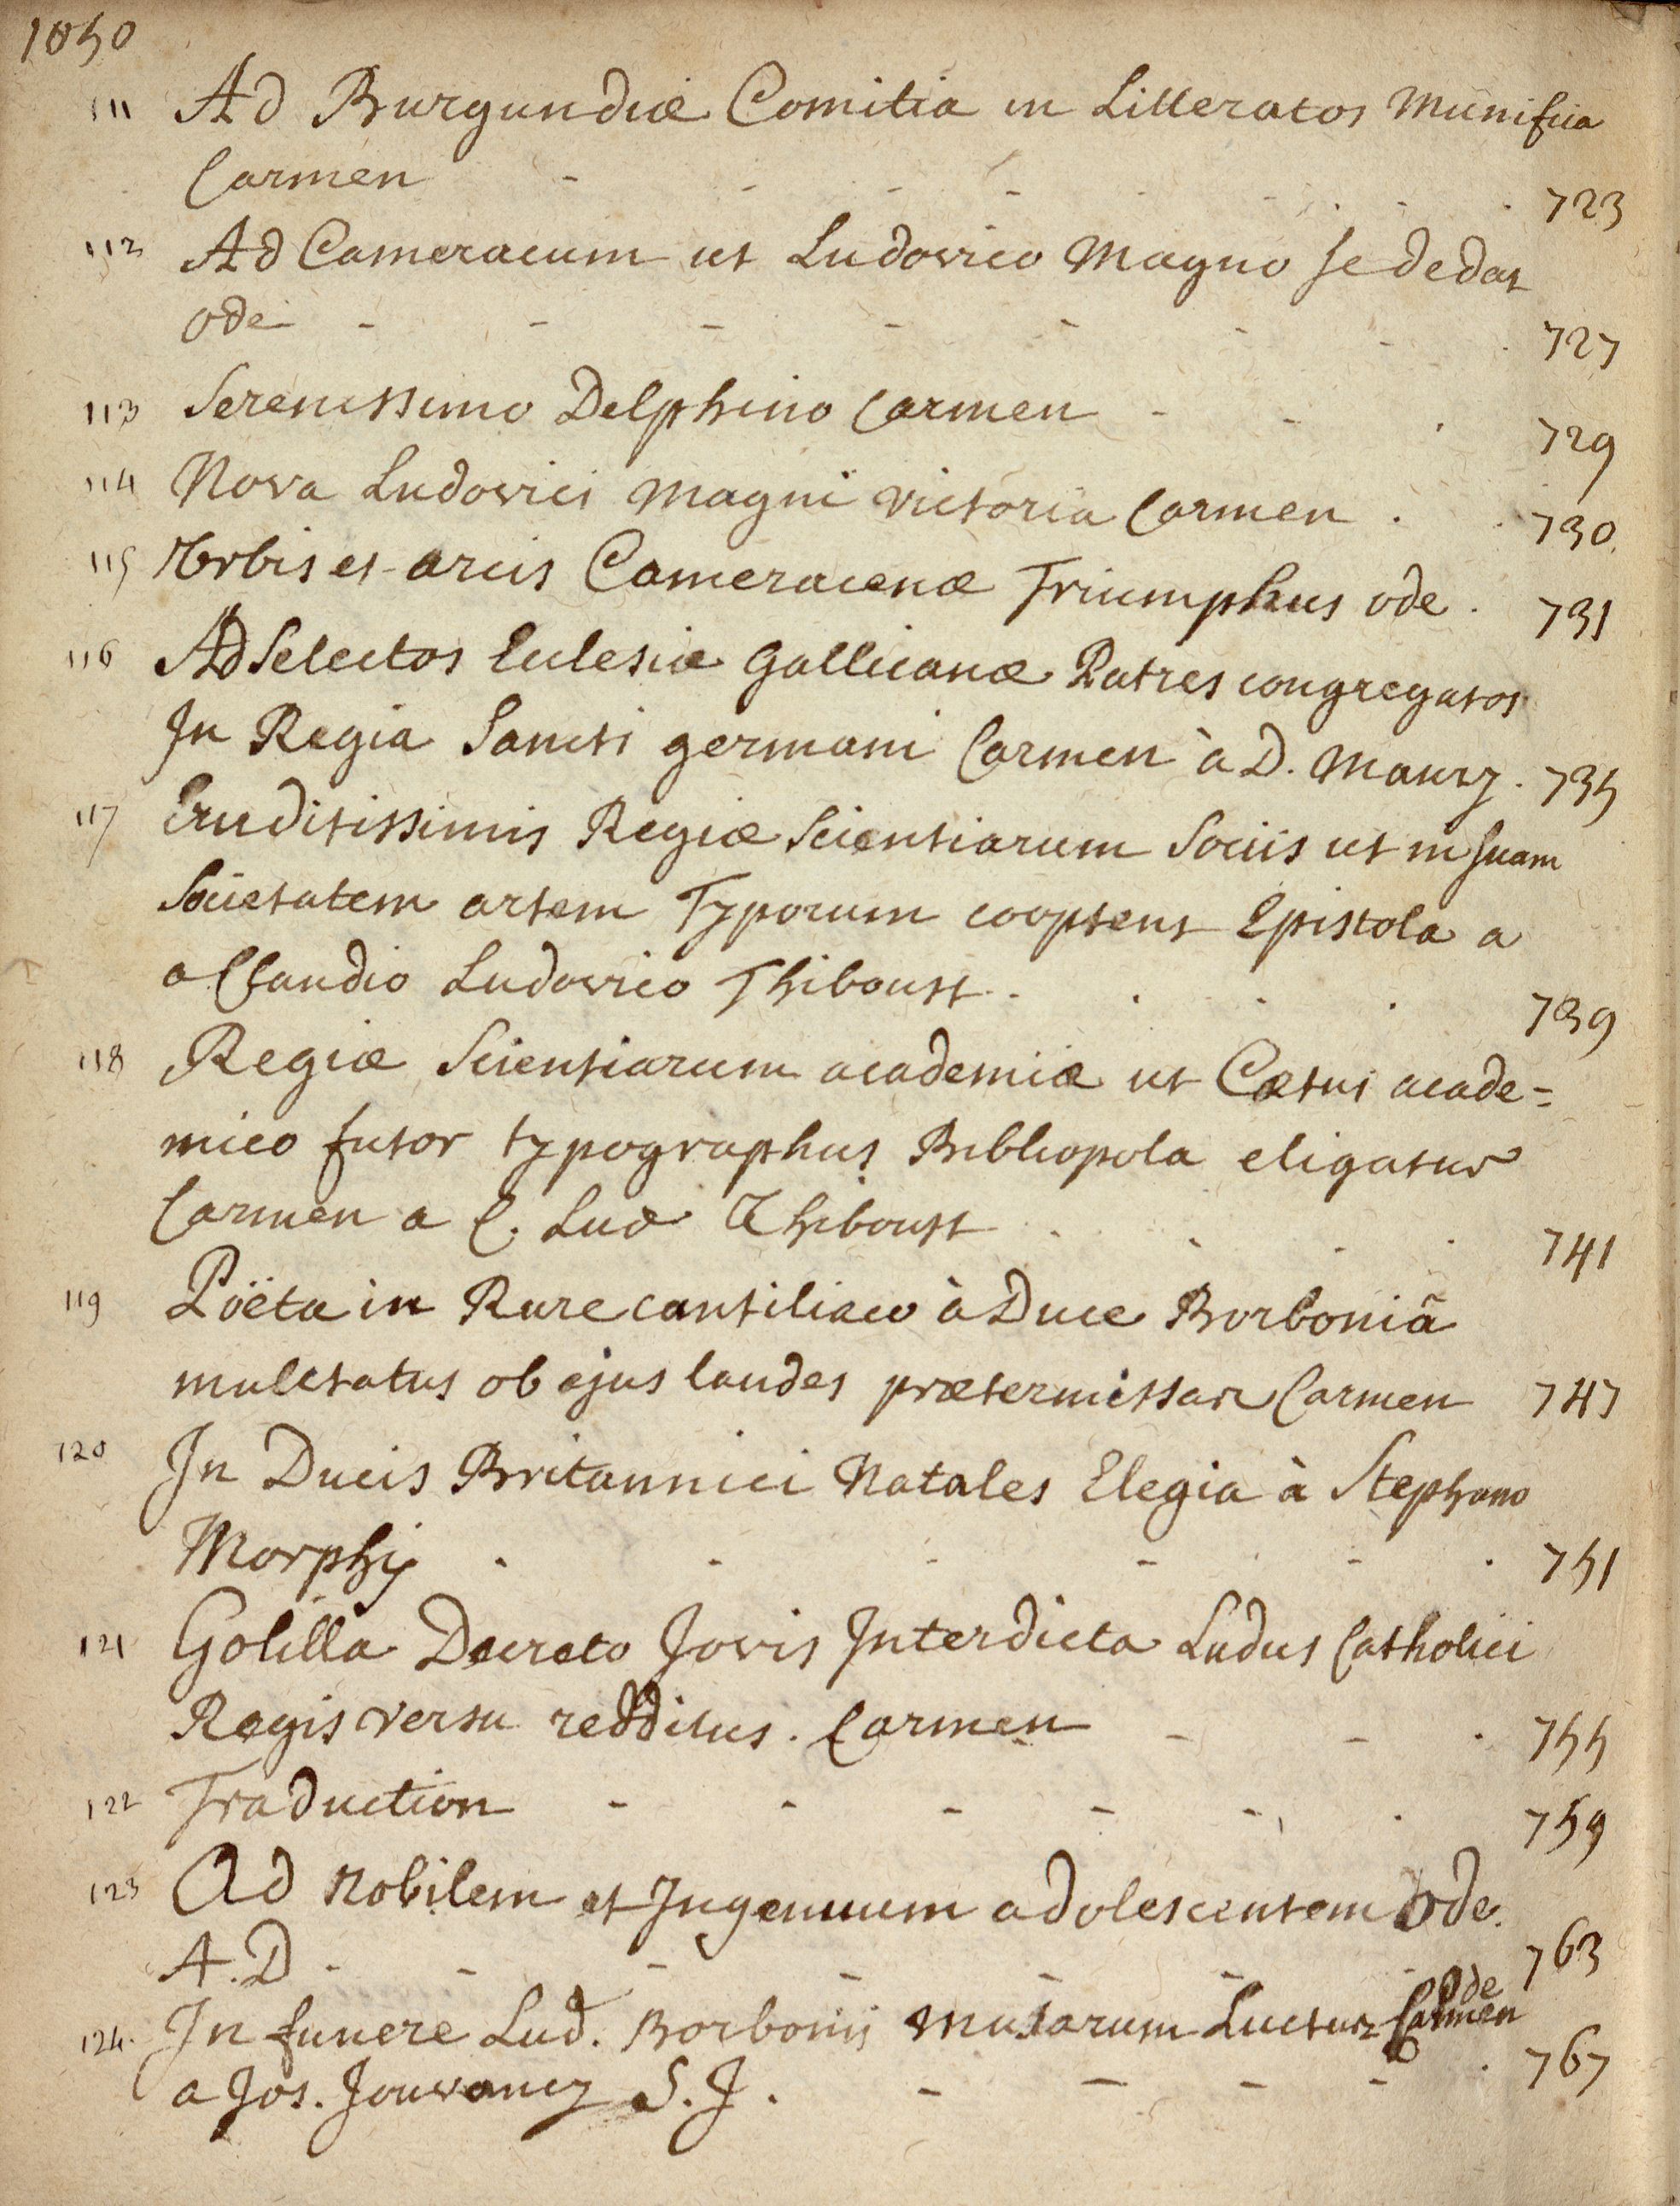 1050
111 Ad Burgundiæ Comitia in Litteratos Munifica
Carmen - - - - - - . . 723
112 Ad Cameracum ut Ludovico Magno se dedat
ode - - - - - - - . 727
113 Serenissimo Delphino Carmen - - . 729
114 Nova Ludovici Magni victoria Carmen . . 730.
115 Urbis et arcis Cameracenæ Triumphus ode . 731
116 Ad Selectos Eclesiæ Gallicanæ Patres congregatos
In Regia Sancti germani Carmen à D. Maury . 735
117 Eruditissimis Regiæ Scientiarum Sociis ut in suam
Societatem artem Typorum cooptent Epistola a
a Claudio Ludovico Thiboust . . . . 739
118 Regiæ Scientiarum academiæ ut Cœtui acade=
mico futor typographus Bibliopola eligatur
Carmen a C. Lud Thiboust . . . . 741
119 Poëta in Rure cantiliaco à Duce Borboniâ
mulctatus ob ejus laudes prætermissas Carmen 747
120 In Ducis Britannici Natales Elegia à Stephano
Morphy . - - - - . 751
121 Golilla Decreto Jovis Interdicta Ludus Catholici
Regis versu redditus . Carmen - - . 755
122 Traduction - - - - - . 759
123 Ad Nobilem et Ingenuum adolescentem Ode.
A.D . - - - - - - 763
Ode
124. In funere Lud. Borbonij Musarum Luctus Carmen
a Jos. Jouvancy S.J . - - - - . 767